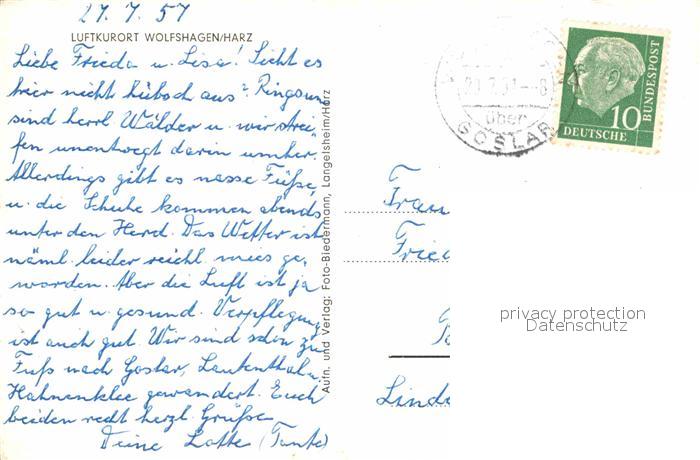 27. 7. 57
LUFTKURORT WOLFSHAGEN/HARZ
Liebe Frieda u. Lisa! Sieht es
hier nicht hübsch aus? Ringsum
sind herrl. Wälder u. wir strei-
fen unentwegt darin umher.
Allerdings gibt es nasse Füße,
u. die Schuhe kommen abends
unter den Herd. Das Wetter ist
näml. leider reichl. mies ge-
worden. Aber die Luft ist ja
so gut u. gesund. Verpflegung
ist auch gut. Wir sind schon zu
Fuß nach Goslar, Lautenthal u.
Hahnenklee gewandert. Euch
beiden recht herzl. Grüße
Deine Lotte (Tante)
Aufn. und Verlag: Foto-Biedermann, Langelsheim/Harz
über
GOSLAR
10
DEUTSCHE
BUNDESPOST
Frau
Fried
Linde
privacy protection
Datenschutz